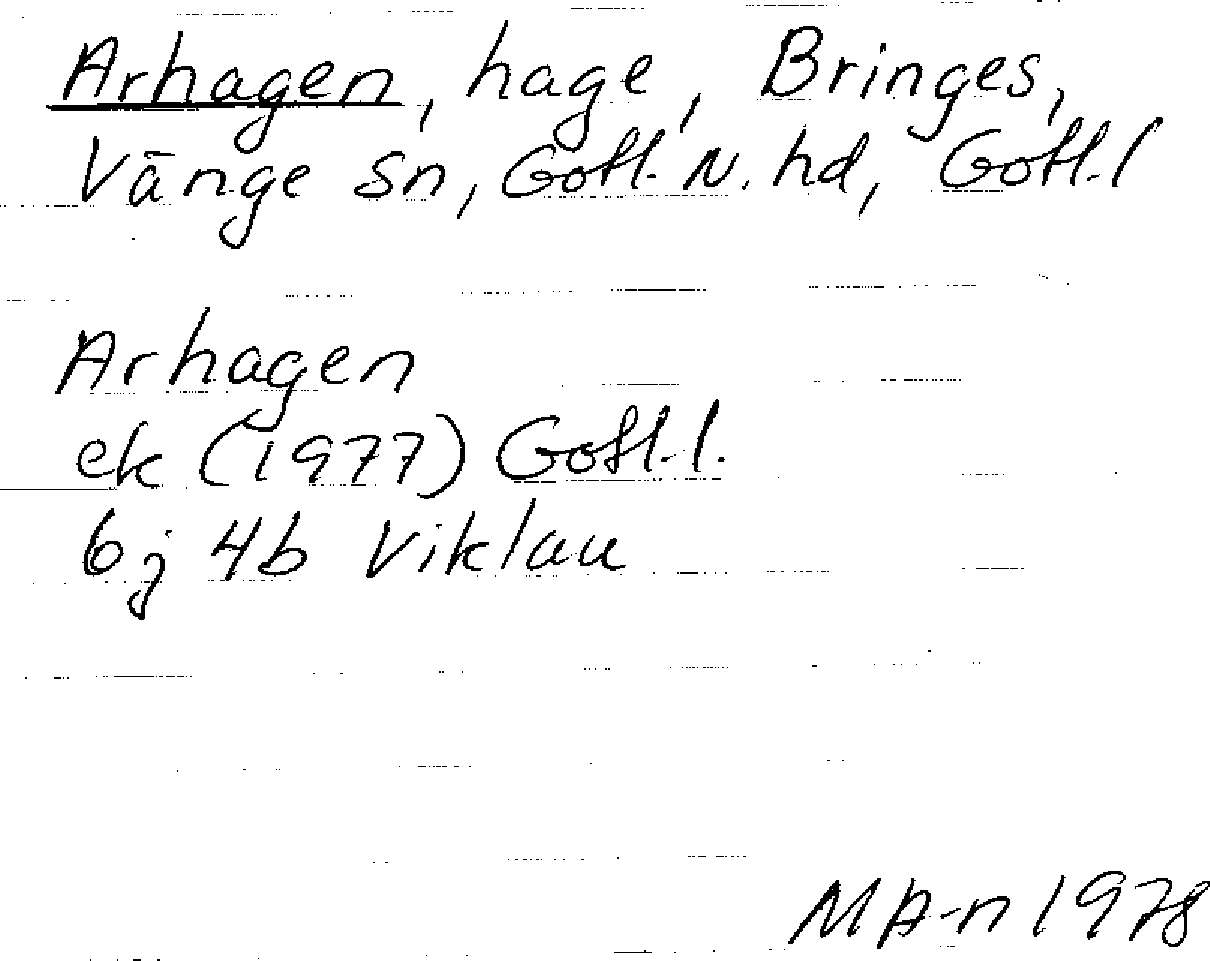 Arhagen, hage, Bringes,
Vänge sn, Gotl. N. hd, Gotl. l
Arhagen
ek (1977) Gotl. l.
6j 4b Viklau
MA-n 1978